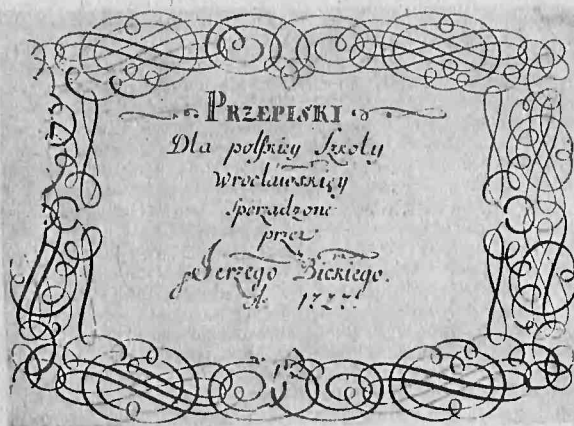 PRZEPISKI
Dla polſkiey Szkoły
wrocławskiey
ſporządzone
przez
Jerzego Bickiego.
A. 1727.